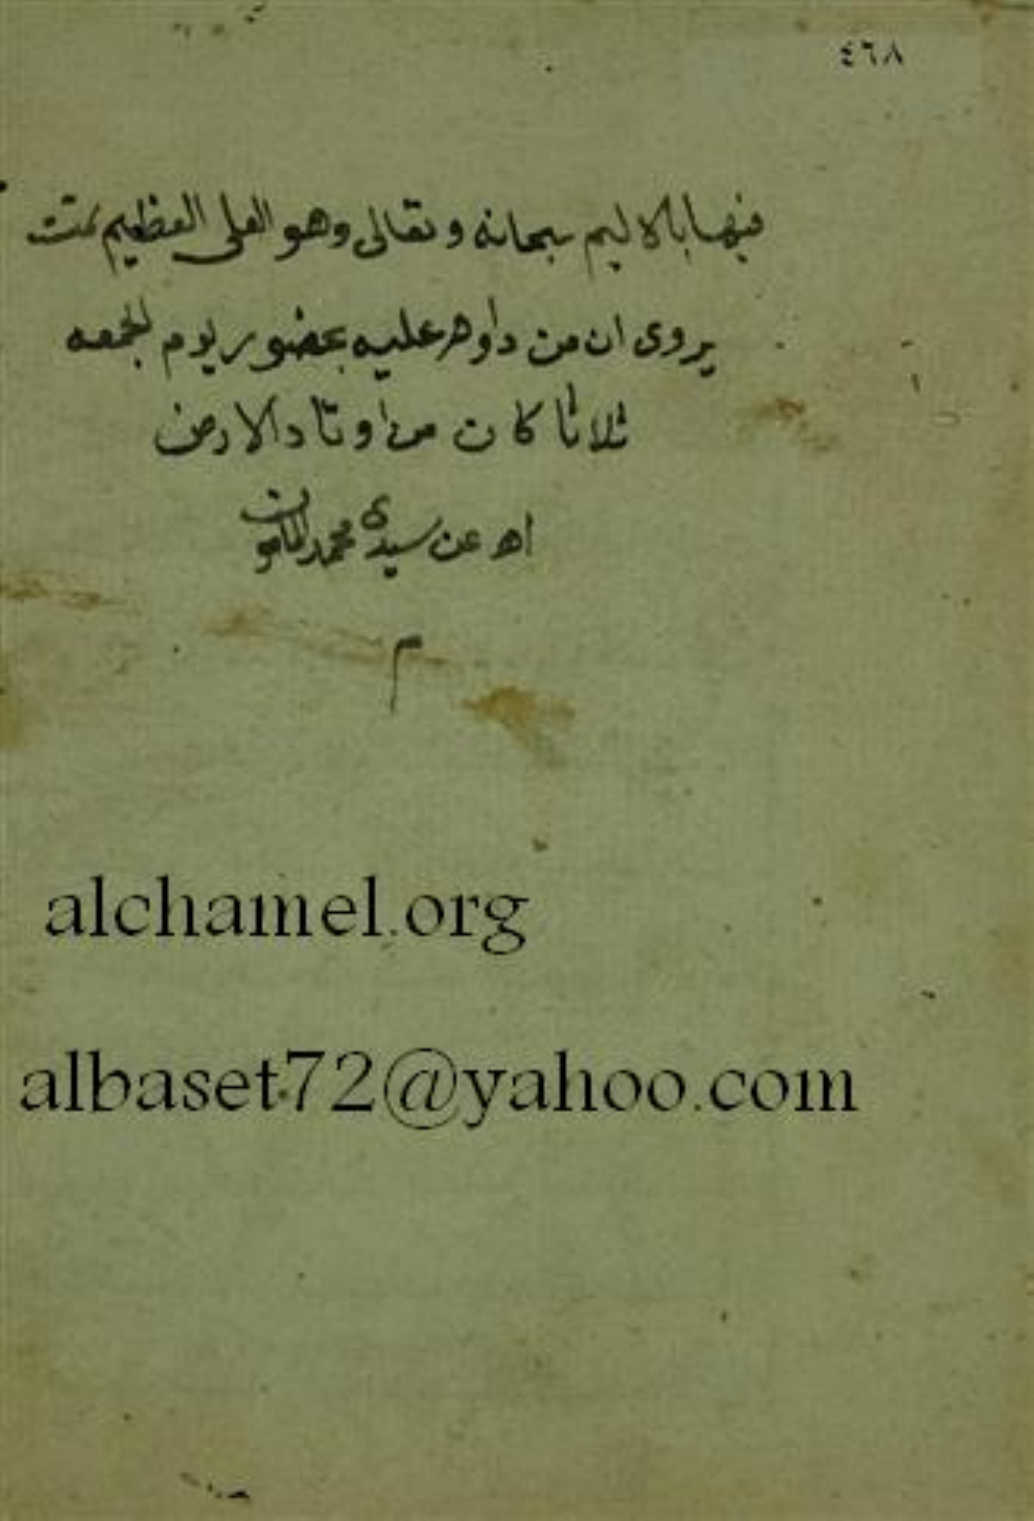 ٤٦٨
فيها بالاليم سبحانه وتعالى وهو العلى العظيم تمت
يروى ان من داوم عليه بحضور يوم الجمعه
ثلاثا كان من اوتاد الارض
اهـ عن سيدى محمد
م
alchamel.org
albaset72@yahoo.com